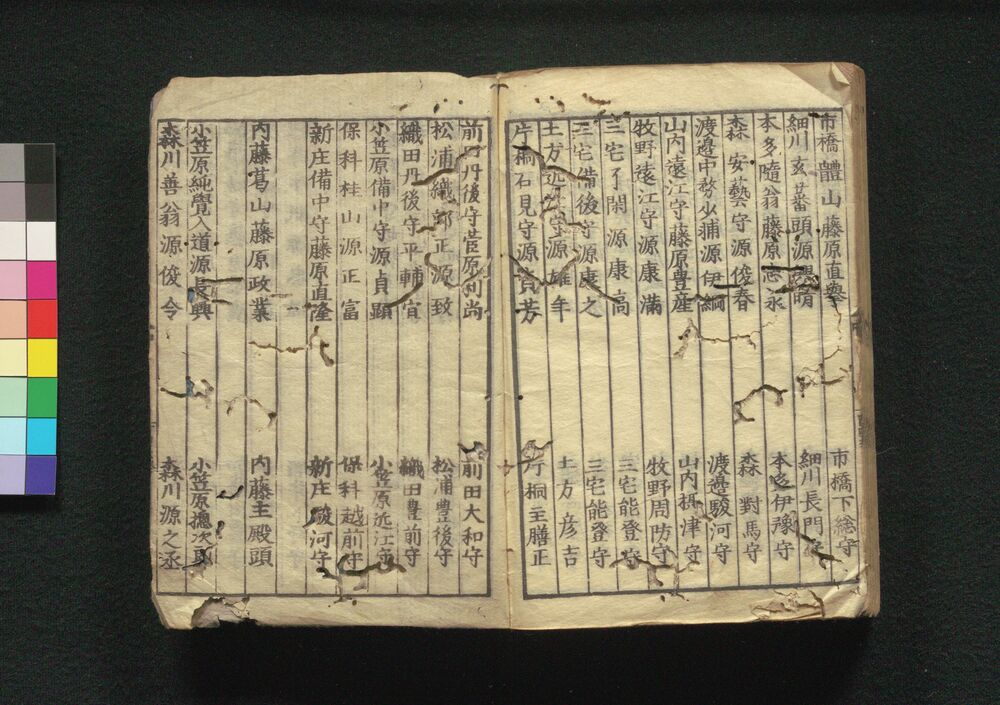 市橋體山藤原直擧 市橋下総守
細川玄蕃頭源 晴 細川長門守
本多隨翁藤原志永 本多伊豫守
森安藝守源俊春 森對馬守
渡邊中務少輔源伊綱 渡邊駿河守
山内遠江守藤原豊産 山内摂津守
牧野遠江守源康満 牧野周防守
三宅了閑源康高 三宅能登守
三宅備後守源康之 三宅能登守
土方近江守源雄年 土方彦吉
片桐石見守源貞芳 片桐主膳正
前田丹後守菅原利尚 前田大和守
松浦織部正源致 松浦豊後守
織田丹後守平輔宜 織田豊前守
小笠原備中守源貞顕 小笠原近江守
保科桂山源正富 保科越前守
新庄備中守藤原直隆 新庄駿河守
内藤葛山藤原政業 内藤主殿頭
小笠原純覺入道源長興 小笠原摠次郎
森川善翁源俊令 森川源之丞